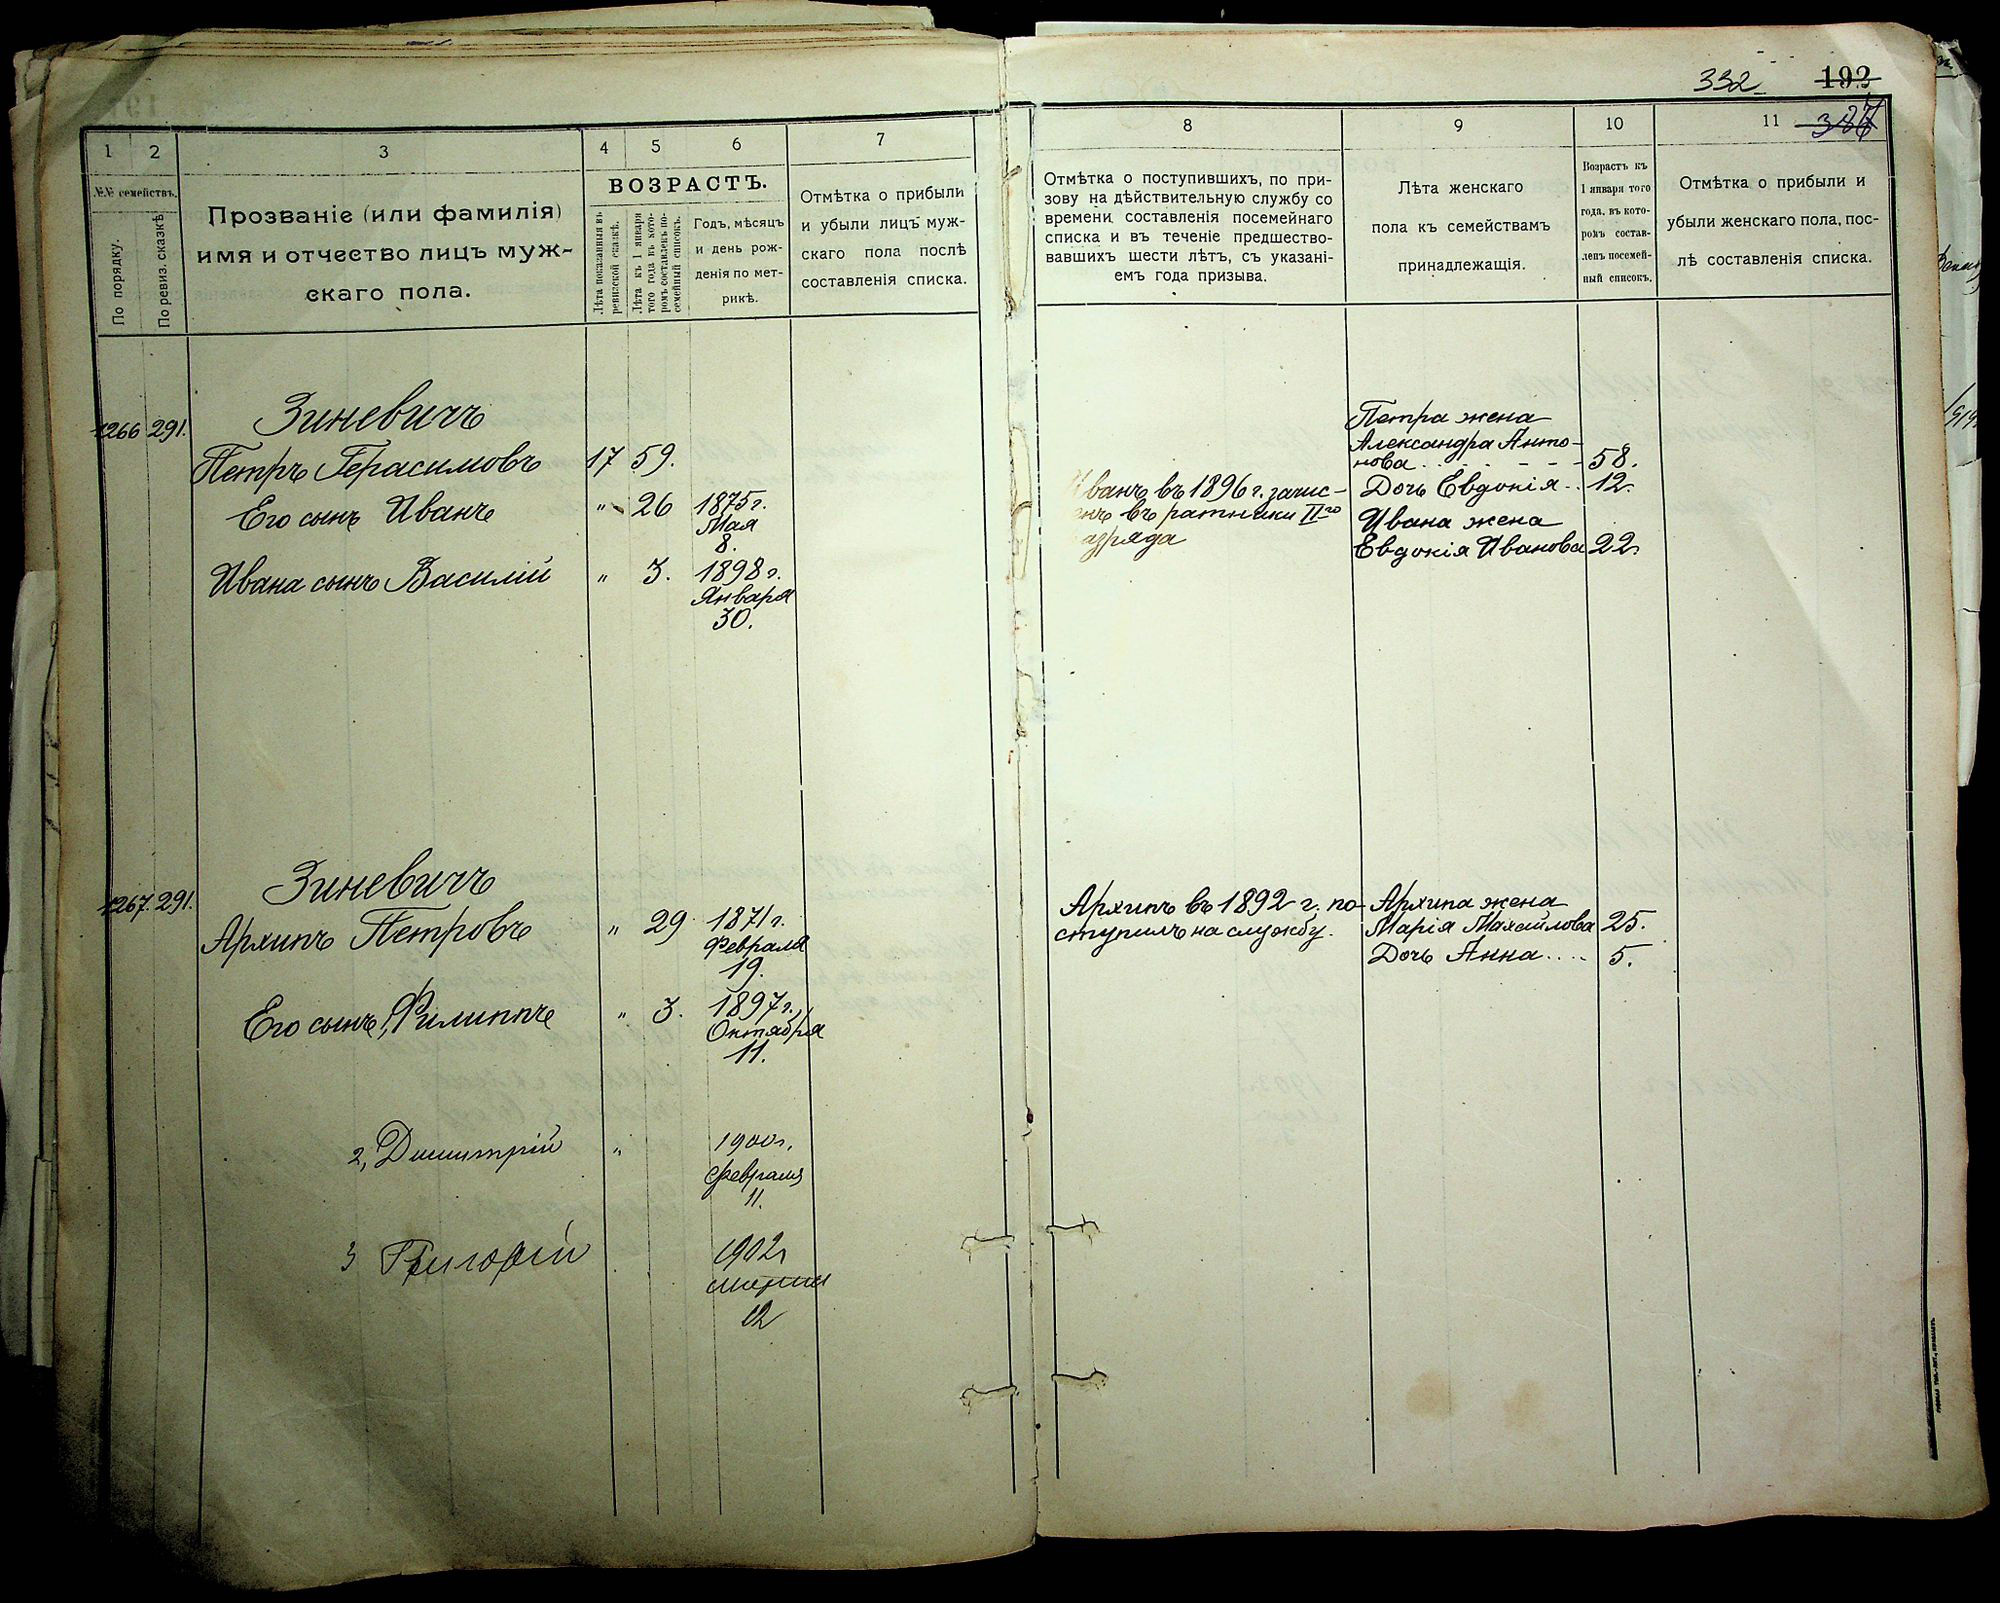 332
193
1
2
3
4
5
6
7
№№ семействъ.
По порядку.
По ревиз. сказкѣ
Прозваніе (или фамилія)
имя и отчество лицъ муж-
скаго пола.
ВОЗРАСТЪ.
Лѣта показанныя въ
ревизской сказкѣ.
Лѣта къ 1 января
того года въ кото-
ромъ составленъ по-
семейный списокъ.
Годъ, мѣсяцъ
и день рож-
денія по мет-
рикѣ.
Отмѣтка о прибыли
и убыли лицъ муж-
скаго пола послѣ
составленія списка.
1266 291.
Зиневичъ
Петръ Герасимовъ 17 59.
Его сынъ Иванъ " 26 1875 г.
Мая
8.
Ивана сынъ Василій " 3. 1898 г.
Января
30.
1267. 291.
Зиневичъ
Архипъ Петровъ " 29 1871 г.
Февраля
19.
Его сынъ, Филиппъ " 3. 1897 г.
Октября
11.
2, Димитрій " 1900 г.
Февраля
11.
3 Григорій 1902 г
12
8
9
10
11
Отмѣтка о поступившихъ, по при-
зову на дѣйствительную службу со
времени составленія посемейнаго
списка и въ теченіе предшество-
вавшихъ шести лѣтъ, съ указані-
емъ года призыва.
Лѣта женскаго
пола къ семействамъ
принадлежащія.
Возрастъ къ
1 января того
года, въ кото-
ромъ состав-
ленъ посемей-
ный списокъ.
Отмѣтка о прибыли и
убыли женскаго пола, пос-
лѣ составленія списка.
Иванъ въ 1896 г. зачис-
енъ въ ратники II го
азряда
Петра жена
Александра Анто-
нова 58.
Дочь Евдокія 12.
Ивана жена
Евдокія Иванова 22.
Архипъ въ 1892 г. по-
ступилъ на службу.
Архипа жена
Марія Михайлова 25.
Дочь Анна 5.